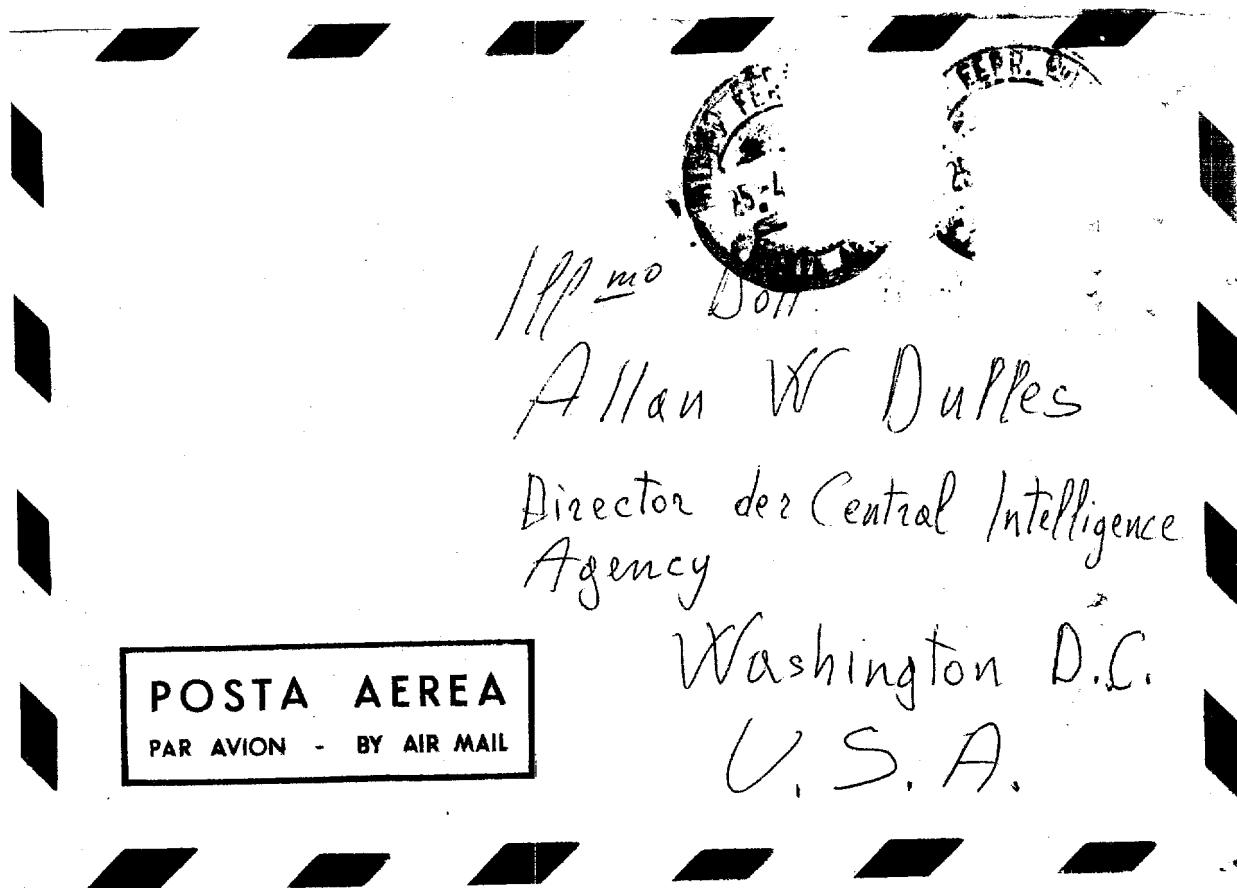 25.-4
FERR.
25
Ill mo Dott.
Allan W Dulles
Director der Central Intelligence
Agency
Washington D.C.
U.S.A.
POSTA AEREA
PAR AVION - BY AIR MAIL